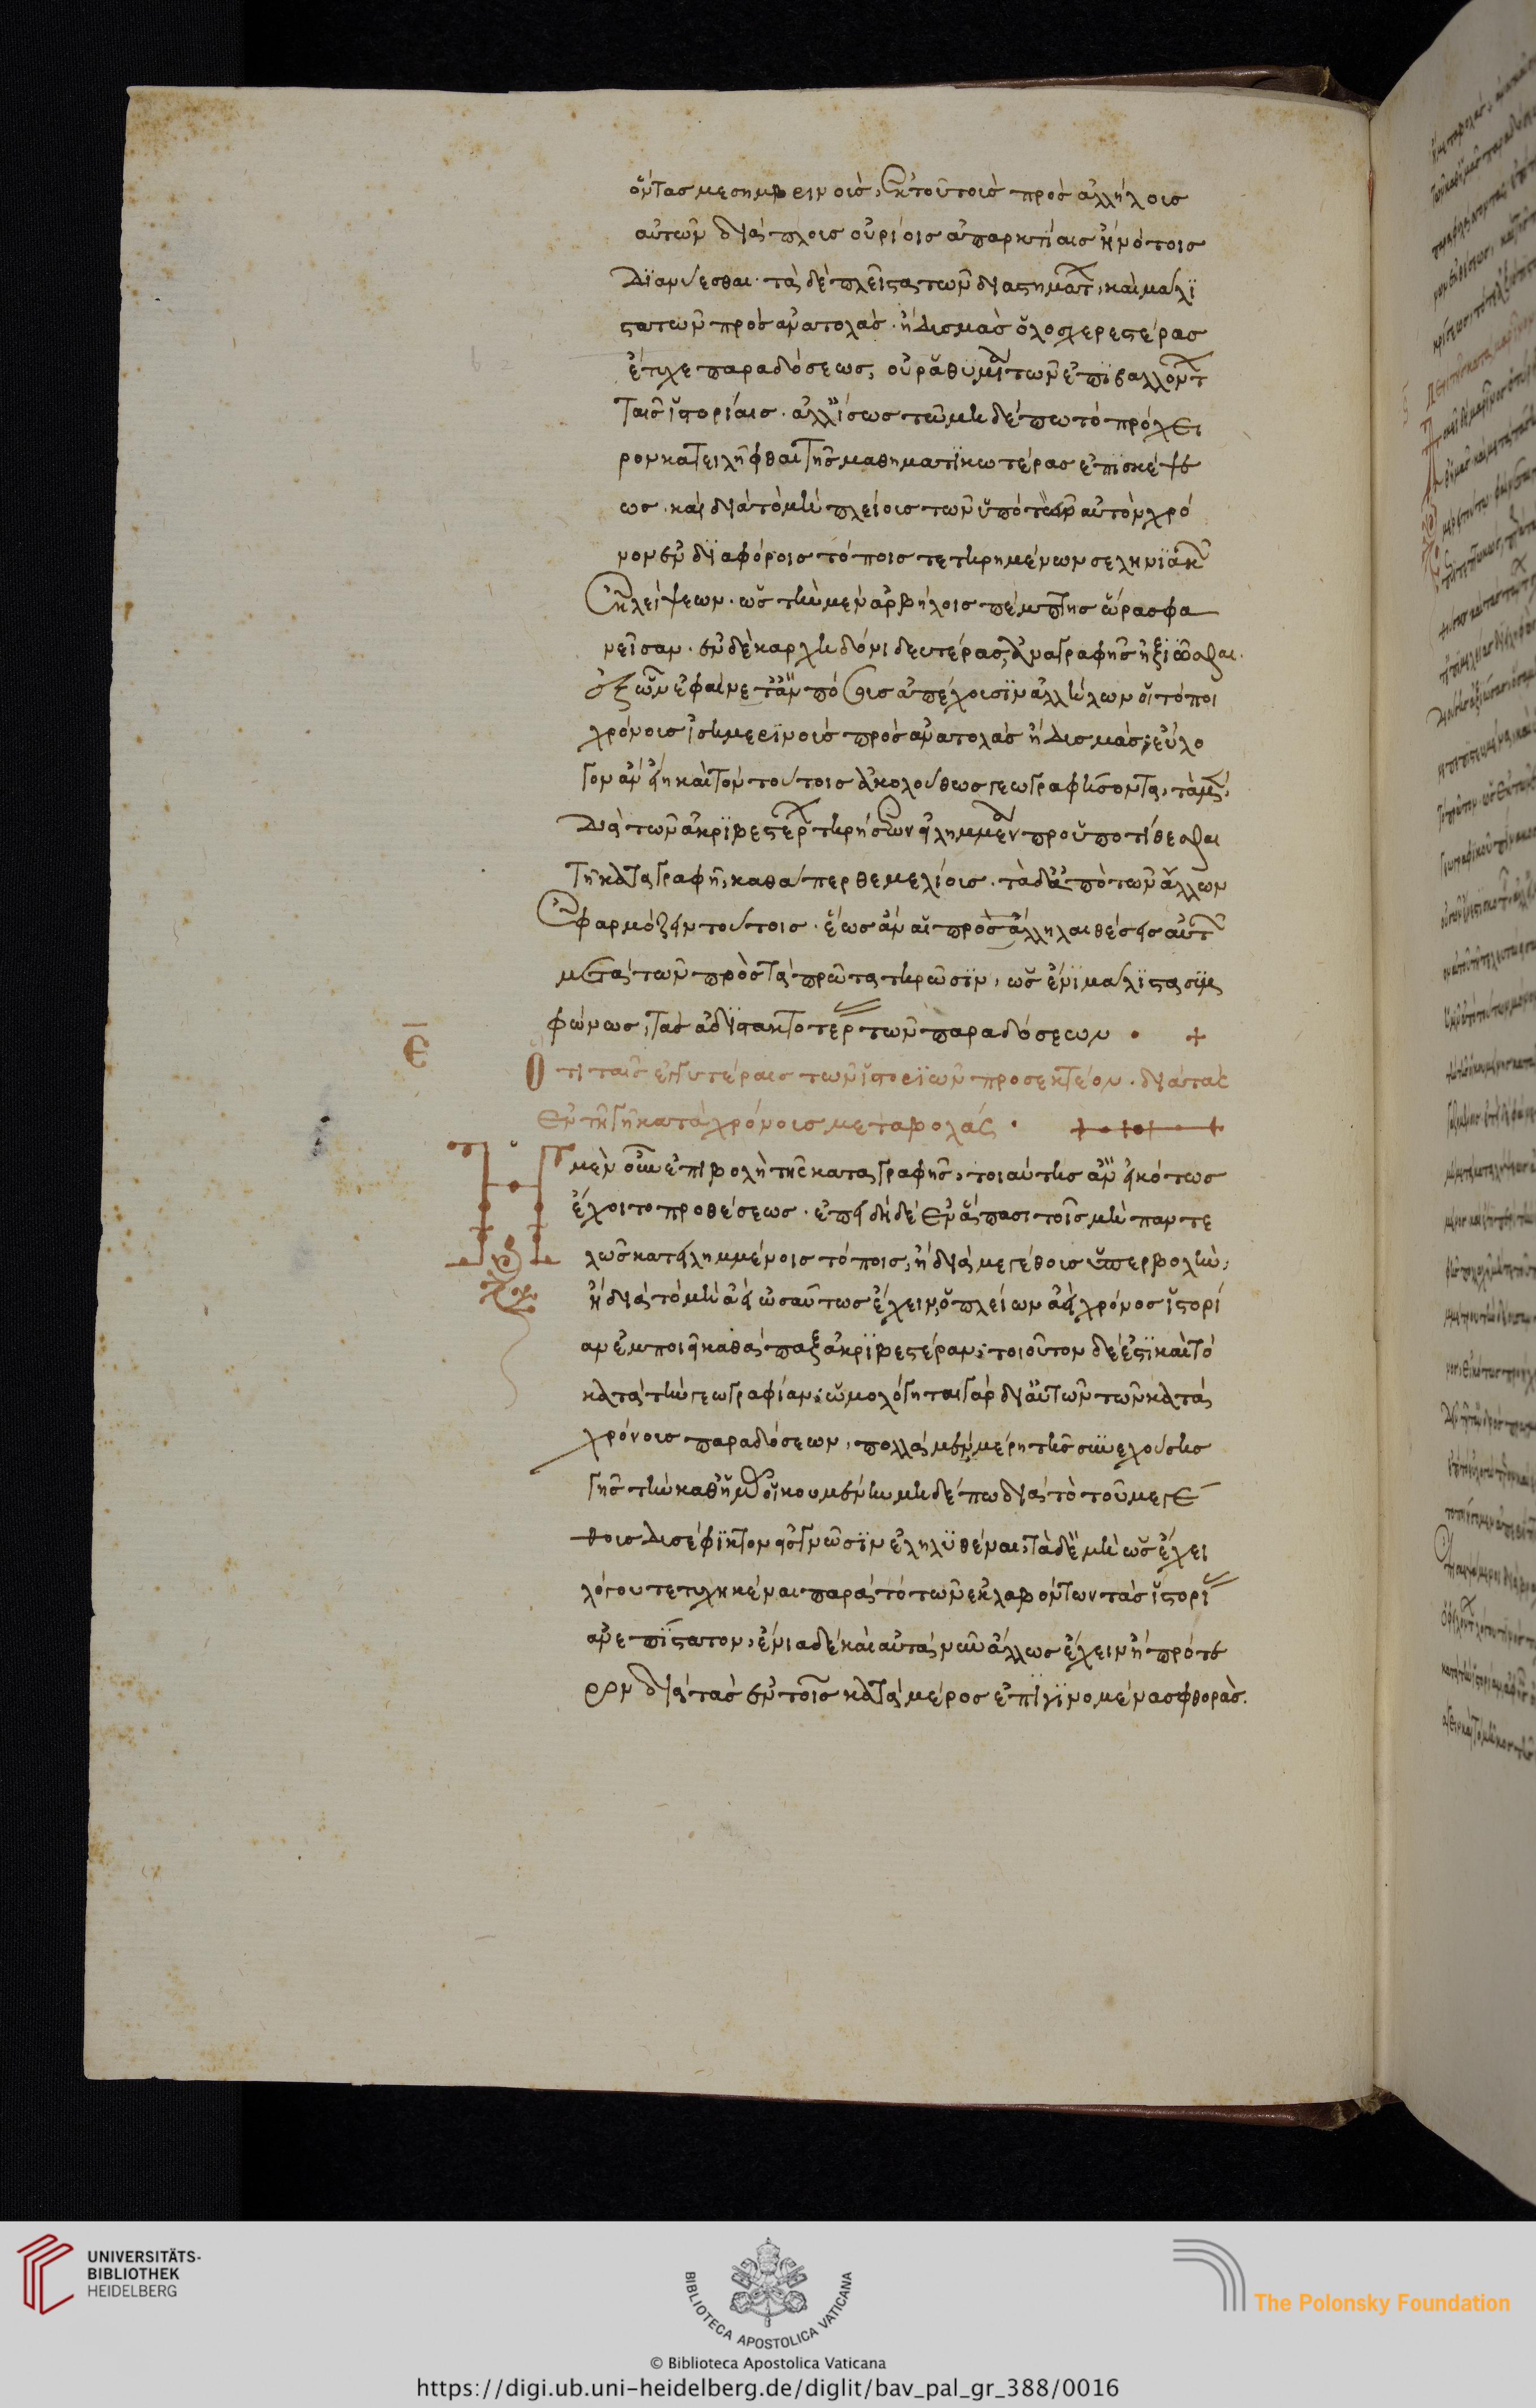 ὄντας μεσημβρινοὺς, ἐκ τοῦ τοὺς πρὸς ἀλλήλους
αὐτῶν διάπλους οὐρίοις ἀπαρκτίαις ἢ νότοις
διανύεσθαι· τὰ δὲ πλεῖστα τῶν διαστημάτ, καὶ μάλι
στα τῶν πρὸς ἀνατολὰς ἢ δυσμὰς ὁλοσχερεστέρας
ἔτυχε παραδόσεως, οὐ ῥαθυμί τῶν ἐπιβαλλόντ
ταῖς ἱστορίαις· ἀλλ' ἴσως τῶ μηδέπω τὸ πρόχει
ρον κατειλῆφθαι τῆς μαθηματικωτέρας ἐπισκέψε
ως· καὶ διὰ τὸ μὴ πλείους τῶν ὑπὸ τὸν αὐτὸν χρό
νον ἐν διαφόροις τόποις τετηρημένων σεληνιακ
ἐκλείψεων· ὡς τὴν μὲν ἀρβήλοις πέμπτης ὥρας φα
νεῖσαν· ἐν δὲ καρχηδόνι δευτέρας, ἀναγραφῆς ἠξιῶσθαι.
ἐξ ὧν ἐφαίνετ' ἂν πόσους ἀπέχουσιν ἀλλήλων οἱ τόποι
χρόνους ἰσημερινοὺς πρὸς ἀνατολὰς ἢ δυσμάς; εὔλο
γον ἂν εἴη καὶ τὸν τούτοις ἀκολούθως γεωγραφήσοντα, τὰ μὲν
διὰ τῶν ἀκριβεστέρ τηρήσεων εἰλημμέν προϋποτίθεσθαι
τῆ καταγραφῆ, καθάπερ θεμελίους· τὰ δ' ἀπὸ τῶν ἄλλων
ἐφαρμόζειν τούτοις· ἕως ἂν αἱ πρὸς ἄλληλα θέσεις αὐτ
μετὰ τῶν πρὸς τὰ πρῶτα τηρῶσιν, ὡς ἔνι μάλιστα συμ
φώνως, τὰς ἀδιστακτοτέρ τῶν παραδόσεων · +
ε
Ὅτι ταῖς ἐγγυτέραις τῶν ἱστοριῶν προσεκτέον· διὰ τὰς
ἐν τῆ γῆ κατὰ χρόνους μεταβολάς ·
Ἡ μὲν οὖν ἐπιβολὴ τῆς καταγραφῆς, τοιαύτης ἂν εἰκότως
ἔχοιτο προθέσεως· ἐπειδὴ δὲ ἐν ἅπασι τοῖς μὴ παντε
λῶς κατειλημμένοις τόποις, ἢ διὰ μεγέθους ὑπερβολὴν,
ἢ διὰ τὸ μὴ ἀεὶ ὡσαύτως ἔχειν, ὁ πλείων ἀεὶ χρόνος ἱστορί
αν ἐμποιεῖ καθάπαξ ἀκριβεστέραν; τοιοῦτον δέ ἐστι καὶ τὸ
κατὰ τὴν γεωγραφίαν; ὡμολόγηται γὰρ δι' αὐτῶν τῶν κατὰ
χρόνους παραδόσεων, πολλὰ μὲν μέρη τῆς συνεχούσης
γῆς τὴν καθ' ἡμᾶς οἰκουμένην μηδέπω διὰ τὸ τοῦ μεγέ
θους δυσέφικτον εἰς γνῶσιν ἐληλυθέναι; τὰ δὲ μὴ ὡς ἔχει
λόγου τετυχηκέναι παρὰ τὸ τῶν ἐκλαβόντων τὰς ἱστορί
ἀνεπίστατον, ἔνια δὲ καὶ αὐτὰ νῦν ἄλλως ἔχειν ἢ πρότε
ρον διὰ τὰς ἐν τοῖς κατὰ μέρος ἐπιγινομένας φθοράς.
UNIVERSITÄTS-
BIBLIOTHEK
HEIDELBERG
BIBLIOTECA APOSTOLICA VATICANA
© Biblioteca Apostolica Vaticana
The Polonsky Foundation
https://digi.ub.uni-heidelberg.de/diglit/bav_pal_gr_388/0016